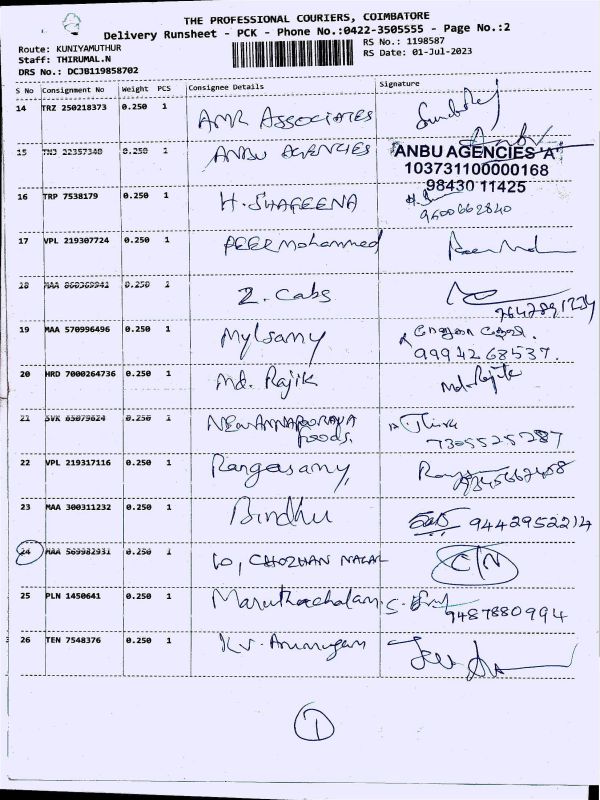 THE PROFESSIONAL COURIERS, COIMBATORE
Delivery Runsheet - PCK - Phone No.:0422-3505555 - Page No.:2
Route: KUNIYAMUTHUR
RS No.: 1198587
Staff: THIRUMAL.N
RS Date: 01-Jul-2023
DRS No.: DCJB119858702
S No Consignment No Weight PCS Consignee Details Signature
14 TRZ 250218373 0.250 1 AMR ASSOCIATES
15 TNJ 22357340 0.250 1 ANBU AGENCIES
ANBU AGENCIES 'A'
103731100000168
98430 11425
16 TRP 7538179 0.250 1 H. SHAFEENA
9600662840
17 VPL 219307724 0.250 1 PEER Mohammed
18 MAA 0.250 1 Z. Cabs
7642891234
19 MAA 570996496 0.250 1 Mylsamy
9994268537.
20 HRD 7000264736 0.250 1 Md. Rajik Md. Rajik
21 SVK 65079624 0.250 1 New ANNAPOORANA
foods.
7305525287
22 VPL 219317116 0.250 1 Rangasamy
23 MAA 300311232 0.250 1 Bindhu 9442952214
24 MAA 569982931 0.250 1 CHOZHAN NAGAR C/N
25 PLN 1450641 0.250 1 Maruthachalam
9487880994
26 TEN 7548376 0.250 1 K.V. Arumugam
1